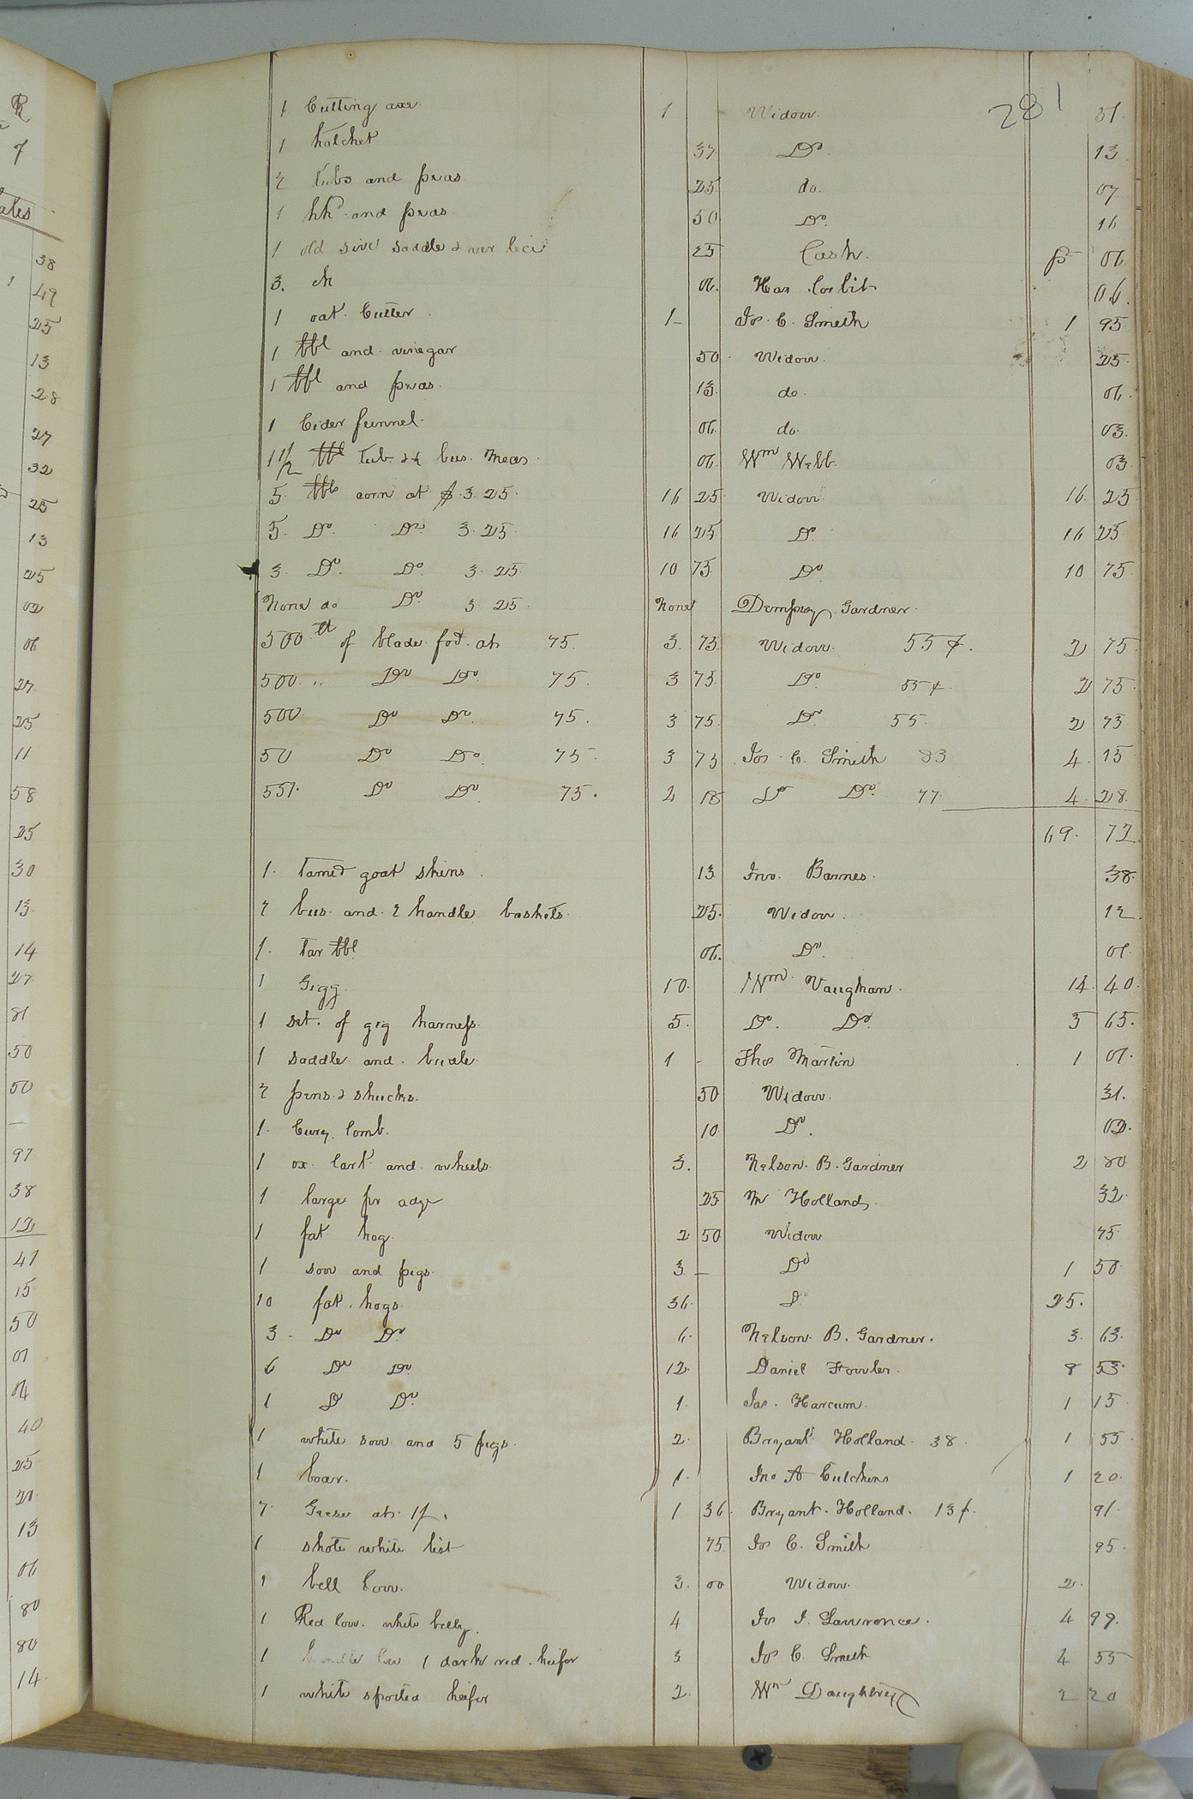 281
1 Cutting axe 1 Widow 31
1 hatchet 37 Do 13
2 tubs and peas 25 do. 07
1 hhd and peas 50 Do. 16
1 old side saddle & 25 Cash. 06
3. 06. Corbit 06.
1 oat Cutter 1 – Jos. C. Smith 1 95
1 bbl and vinegar 50 Widow. 25
1 bbl and peas 13. do. 06.
1 Cider funnel 06. do. 03.
1 1/2 bbl Tub. & bus. Meas. 06. Wm Webb. 03
5. bbls corn at $ 3.25. 16 25 Widow 16. 25
5. Do. Do 3.25. 16 25 D. 16 25
3. Do. Do. 3 25 10 75 Do. 10 75
None do Do. 3 25 None Dempsey Gardner.
500 lb of blade fod. at 75. 3. 75. Widow. 55 ¢. 2 75
500. " Do Do. 75. 3 75. Do. 55 ¢ 2 75
500 Do Do. 75. 3 75. Do 55. 2 75
50 Do Do. 75. 3 75 Jos. C. Smith 83 4. 15
557. Do Do. 75. 4 18 Do. 77 4. 28.
69. 72
1. tanned goat skins 13 Jno. Barnes. 38.
2 bus. and 2 handle baskets. 25. Widow. 12
1. tar bbl. 06. Do. 01
1 Gigg 10. Wm Vaughan. 14. 40.
1 set. of gig harness. 5. Do. Do. 5 65.
1 saddle and bridle. 1 – Thos Martin 1 01.
2 pens & shucks. 50 Widow. 31.
1. Curry Comb. 10 Do. 02.
1 ox Cart and wheels. 3. Nelson. B. Gardner 2 80
1 large 25 M Holland. 32.
1 fat hog. 2 50 Widow 75.
1 sow and pigs. 3. – Do 1 50.
10 fat hogs. 36. D 25.
3 – Do Do 6. Nelson. B. Gardner. 3. 63.
6 Do Do 12. Daniel Fowler. 8 53.
1 D Do. 1. Jas. Harcum. 1 15
1 white sow and 5 pigs. 2. Bryant Holland. 38. 1 55.
1 boar. 1. Jno A Cutchins 1 20.
7. Geese at 1/. 1 36. Bryant. Holland. 13 ¢. 91.
1 shote white list 75. Jos C. Smith 95.
1 bell Cow. 3. 00 Widow. 2.
1 Red Cow. white belly. 4 Jos J. Lawrence. 4 99.
1 Cow 1 dark red heifer 3 Jos C. Smith 4 55
1 white spotted heifer 2. Wm Daughtrey 2 20
38
1 49
25
13
28
27
32
25
13
25
02
06
27
25
11
58
25
30
13.
14
27
81
50
50
–
97
38
12
41
15
50
01
04
40
25
21.
13
06
80
80
14